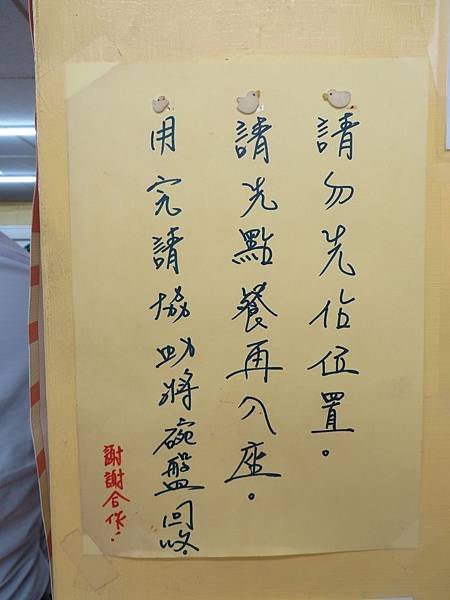 請勿先佔位置。
請先點餐再入座。
用完請協助將碗盤回收
謝謝合作!